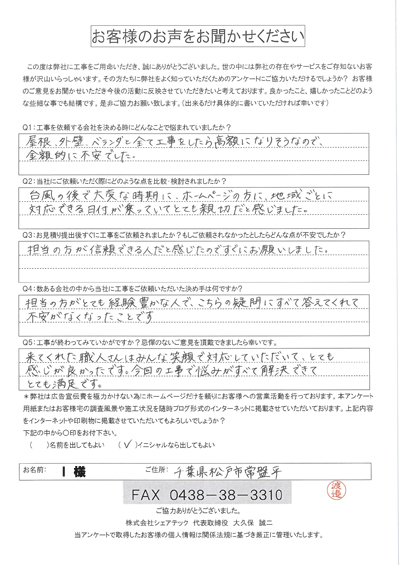 お客様のお声をお聞かせください
この度は弊社に工事をご用命いただき、誠にありがとうございました。世の中には弊社の存在やサービスをご存知ないお客
様が沢山いらっしゃいます。その方たちに弊社をよく知っていただくためのアンケートにご協力いただけるでしょうか? お客様
のご意見をお聞かせいただき今後の活動に反映させていただきたいと考えております。良かったこと、嬉しかったことどのよう
な些細な事でも結構です。是非ご協力お願い致します。(出来るだけ具体的に書いていただければ幸いです)
Q1:工事を依頼する会社を決める時にどんなことで悩まれていましたか?
屋根、外壁、ベランダと全て工事をしたら高額になりそうなので、
金額的に不安でした。
Q2:当社にご依頼いただく際にどのような点を比較・検討されましたか?
台風の後で大変な時期に、ホームページの方に、地域ごとに
対応できる日付が乗っていてとても親切だと感じました。
Q3:お見積り提出後すぐに工事をご依頼されましたか?もしご依頼されなかったとしたらどんな点が不安でしたか?
担当の方が信頼できる人だと感じたのですぐにお願いしました。
Q4:数ある会社の中から当社に工事をご依頼いただいた決め手は何ですか?
担当の方がとても経験豊かな人で、こちらの疑問にすべて答えてくれて
不安がなくなったことです
Q5:工事が終わってみていかがですか?忌憚のないご意見を頂戴できましたら幸いです。
来てくれた職人さんはみんな笑顔で対応していただいて、とても
感じが良かったです。今回の工事で悩みがすべて解決できて
とても満足です。
*弊社は広告宣伝費を極力かけない為にホームページだけを頼りにお客様への営業活動を行っております。本アンケート
用紙またはお客様宅の調査風景や施工状況を随時ブログ形式のインターネットに掲載させていただいております。上記内容
をインターネットや印刷物に掲載させていただいてもよろしいでしょうか?
下記の中から○印をお付下さい。
( )名前を出してもよい (✓)イニシャルなら出してもよい
お名前: I 様 ご住所: 千葉県松戸市常盤平
FAX 0438-38-3310
渡邉
ご協力ありがとうございました。
株式会社シェアテック 代表取締役 大久保 誠二
当アンケートで取得したお客様の個人情報は関係法規に基づき厳正に管理いたします。